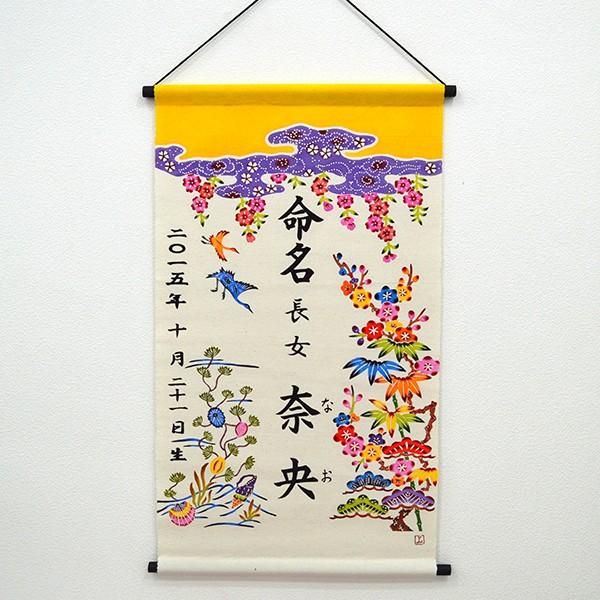 命名 長女 奈央
なお
二〇一五年 十月二十一日生